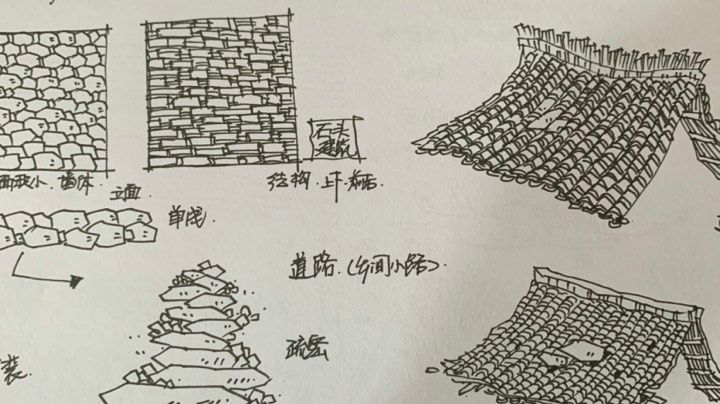 石头
建筑
面积小.墙体
立面.
结构.上下.前后.
单线.
道路.(乡间小路).
疏密
装.